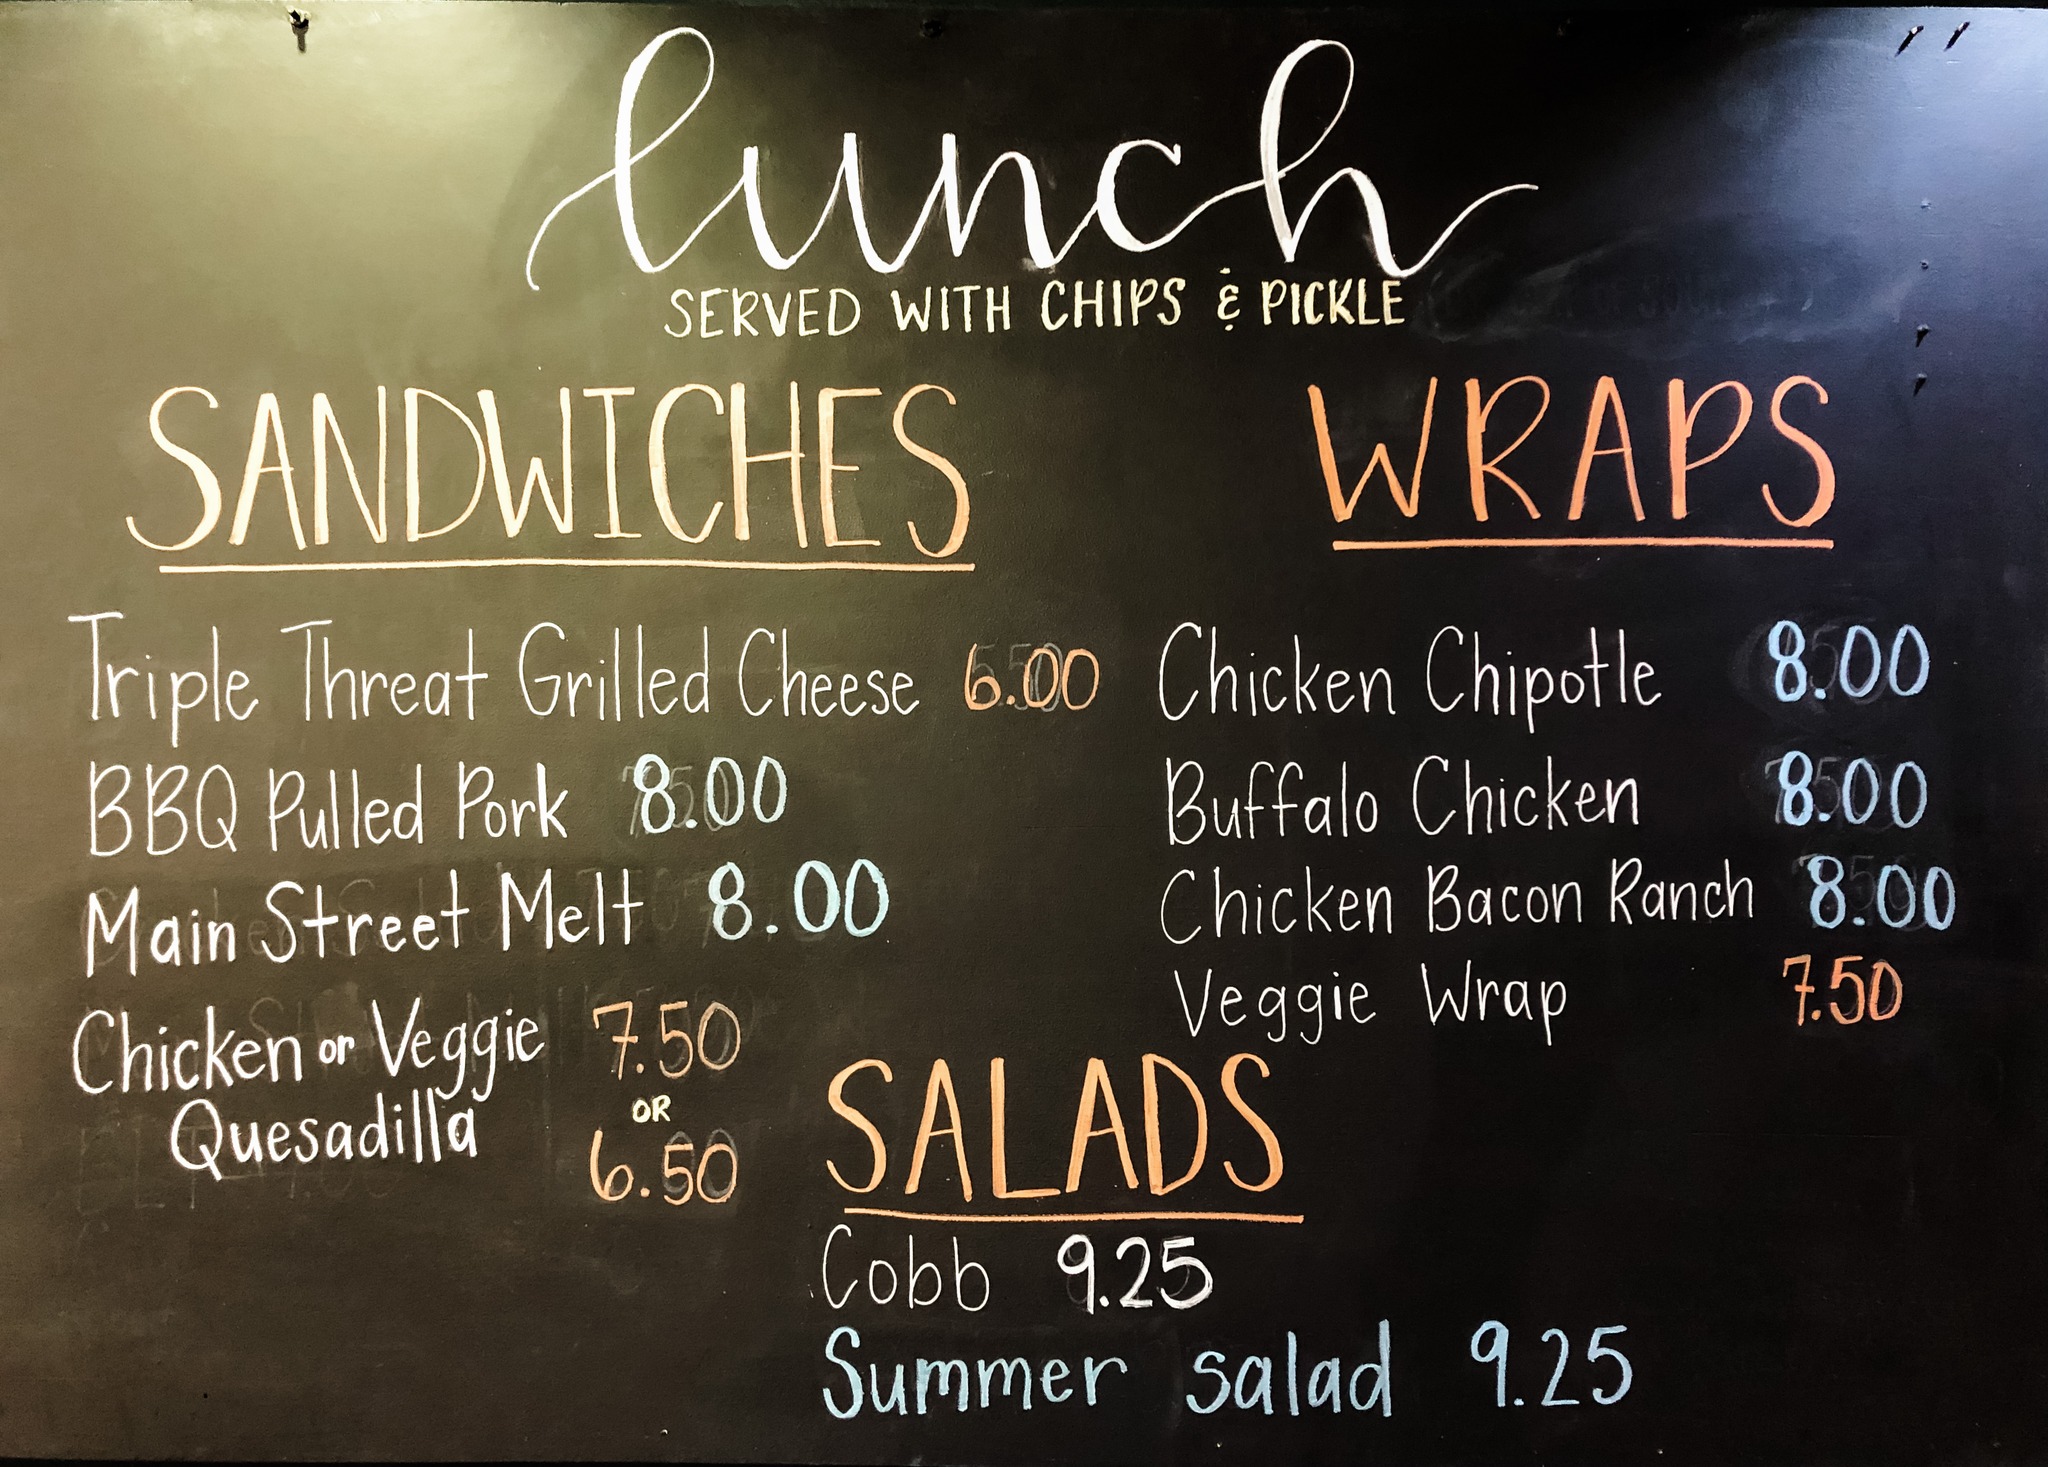 lunch
SERVED WITH CHIPS & PICKLE
SANDWICHES
Triple Threat Grilled Cheese 6.00
BBQ Pulled Pork 8.00
Main Street Melt 8.00
Chicken or Veggie 7.50
OR
Quesadilla 6.50
WRAPS
Chicken Chipotle 8.00
Buffalo Chicken 8.00
Chicken Bacon Ranch 8.00
Veggie Wrap 7.50
SALADS
Cobb 9.25
Summer salad 9.25